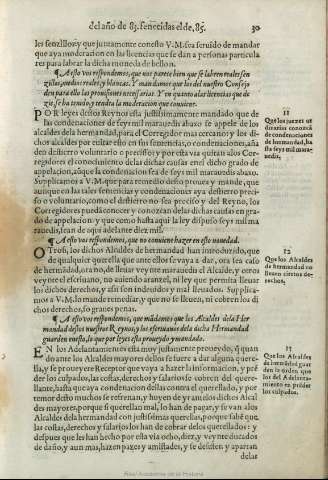 del año de 83. fenecidas el de, 85. 30
les senzillos: y que juntamente conesto V. M. sea seruido de mandar
que aya moderacion en las licencias que se dan a personas particula
res para labrar la dicha moneda de bellon.
¶ A esto vos respondemos, que nos parece bien que se labren reales sen
zillos, medios reales, y blancas. Y mandamos que los del nuestro Consejo
den para ello las prouisiones necessarias. Y en quanto alas licencias que de
zis, se ha tenido y tendra la moderacion que conuiene.
POR leyes destos Reynos esta justissimamente mandado que de
las condenaciones de seys mil marauedis abaxo se appele de los
alcaldes dela hermandad, para el Corregidor mas cercano y los di-
chos alcaldes por euitar esto en sus sentencias, o condenaciones, aña
den destierro voluntario o preciso: y por esta via quitan alos Corre
gidores el conocimiento delas dichas causas en el dicho grado de
apelacion, aũque la condenacion sea de seys mil marauedis abaxo.
Suplicamos a V. M. que para remedio desto prouea y mande, que
aunque en las tales sentencias y condenaciones aya destierro preci-
so o voluntario, como el destierro no sea preciso y del Reyno, los
Corregidores pueda conocer y conozcan delas dichas causas en gra-
do de apelacion: y que como hasta aqui la ley dispuso seys mil ma
rauedis, sean de aqui adelante diez mil.
¶ A esto vos respondemos, que no conuiene hazer en esto nouedad.
OTrosi, los dichos Alcaldes de hermandad han introduzido, que
de qualquier querella que ante ellos se vaya a dar, ora sea caso
de hermãdad, ora no, de lleuar veynte marauedis el Alcalde, y otros
veynte el escriuano, no auiendo aranzel, ni ley que permita lleuar
los dichos derechos, y assi son indeuidos y mal lleuados. Suplica-
mos a V. M. lo mande remediar, y que no se lleuen, ni cobren los di-
chos derechos, so graues penas.
¶ A esto vos respondemos, que mãdamos que los Alcaldes dela Her
mandad destos nuestros Reynos, y los escriuanos dela dicha Hermandad
guarden enesto, lo que por leyes esta proueydo y mandado.
EN los Adelantamientos esta muy justamente proueydo, q̃ quan
do ante los Alcaldes mayores dellos se fuere a dar alguna quere-
lla, y se proueyere Receptor que vaya a hazer la informacion, y pren
der los culpados, las costas, derechos y salarios se cobren del quere-
llante, hasta que aya condenacion dellas contra el querellado, y por
temor desto muchos se refrenan, y huyen de yr antelos dichos Alcal
des mayores, porque si querellan mal, lo han de pagar, y se van alos
Alcaldes dela hermandad con justissimas querellas, porque sabẽ que
las costas, derechos y salarios los han de cobrar delos querellados: y
despues que les han hecho por esta via ocho, diez y veynte ducados
de daño, y aun mas, hazen pazes y amistades, y se desisten y apartan
delas
11
Que los juezes or
dinarios conozcã
de condenaciones
de hermandad, ha
sta seys mil mara-
uedis.
12
Que los Alcaldes
de hermandad no
lleuen ciertos de-
rechos.
13
Que los Alcaldes
de hermãdad guar
den la orden que
los del Adelanta-
miento en prẽder
los culpados.
Real Academia de la Historia